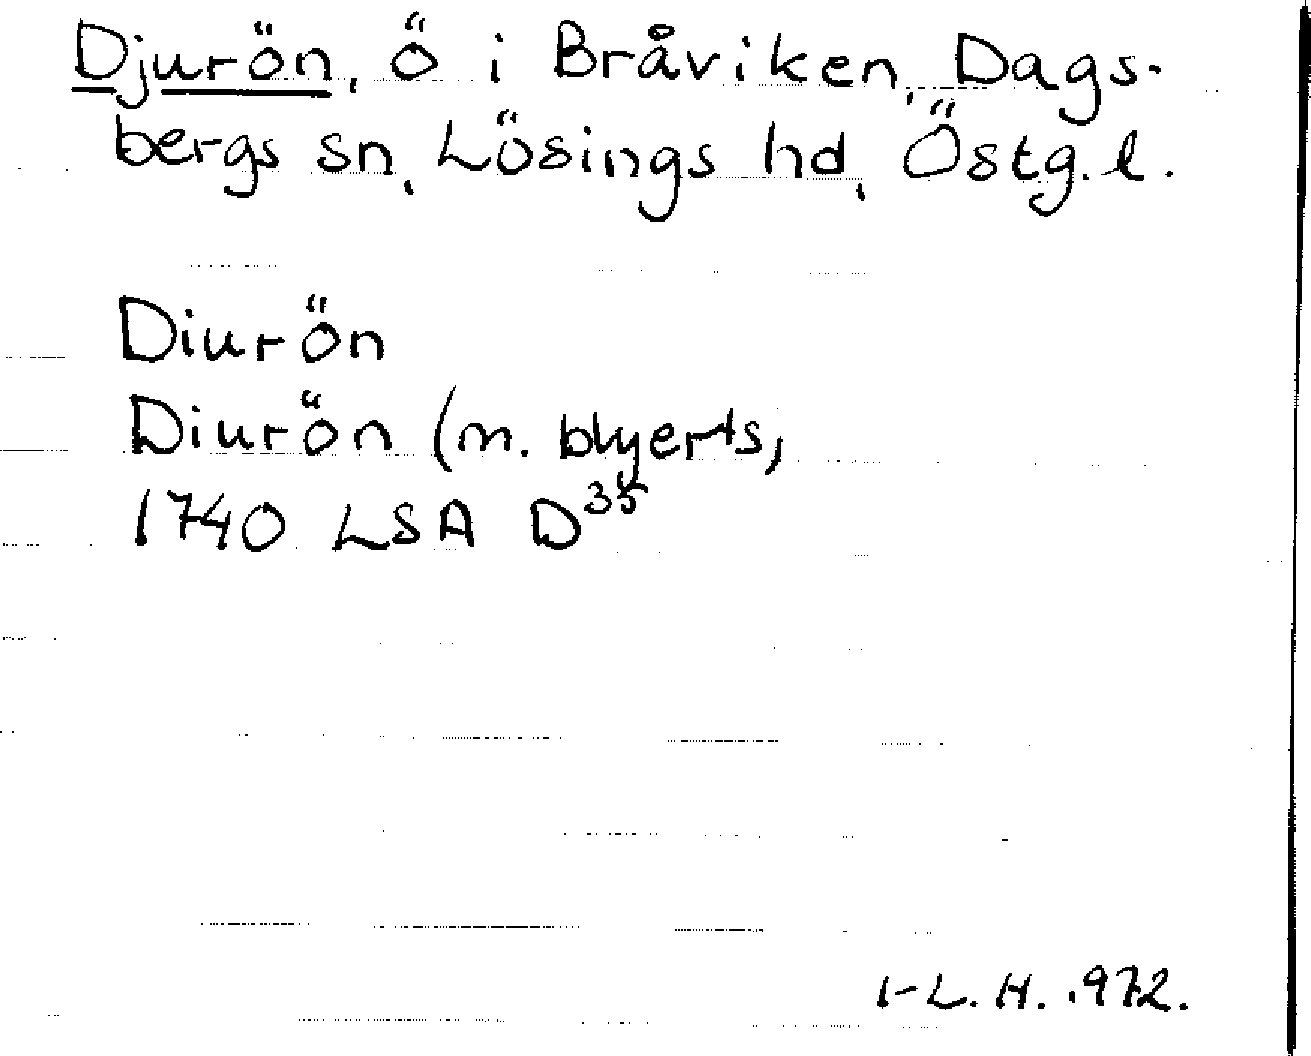 Djurön, ö i Bråviken, Dags-
bergs sn, Lösings hd, Östg. l.
Diurön
Diurön (m. blyerts)
1740 LSA D35
I-L. H. 1972.